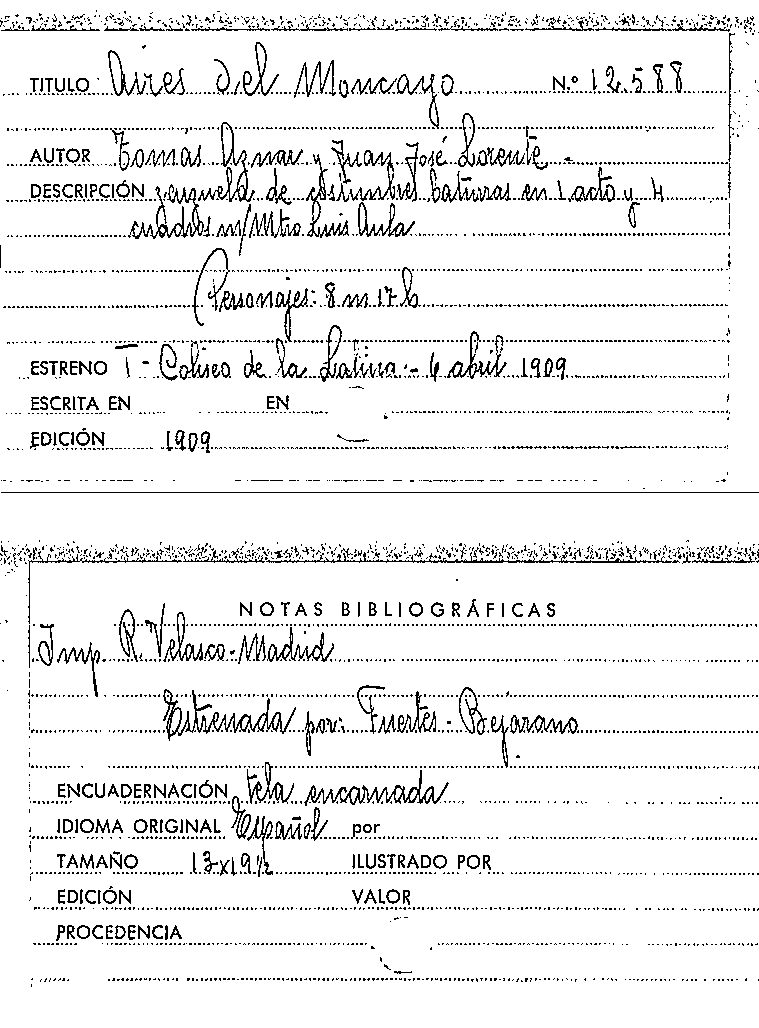 TITULO Aires del Moncayo N.º 12.588
AUTOR Tomás Aznar y Juan José Lorente -
DESCRIPCIÓN zarzuela de costumbres baturras en 1 acto y 4
cuadros m/Mtro Luis Aula
(Personajes: 8 m 17 h
ESTRENO T - Coliseo de la Latina - 6 abril 1909
ESCRITA EN EN
EDICIÓN 1909
NOTAS BIBLIOGRÁFICAS
Imp. R. Velasco - Madrid
Estrenada por: Fuertes - Bejarano
ENCUADERNACIÓN tela encarnada
IDIOMA ORIGINAL Español por
TAMAÑO 13x19½ ILUSTRADO POR
EDICIÓN VALOR
PROCEDENCIA